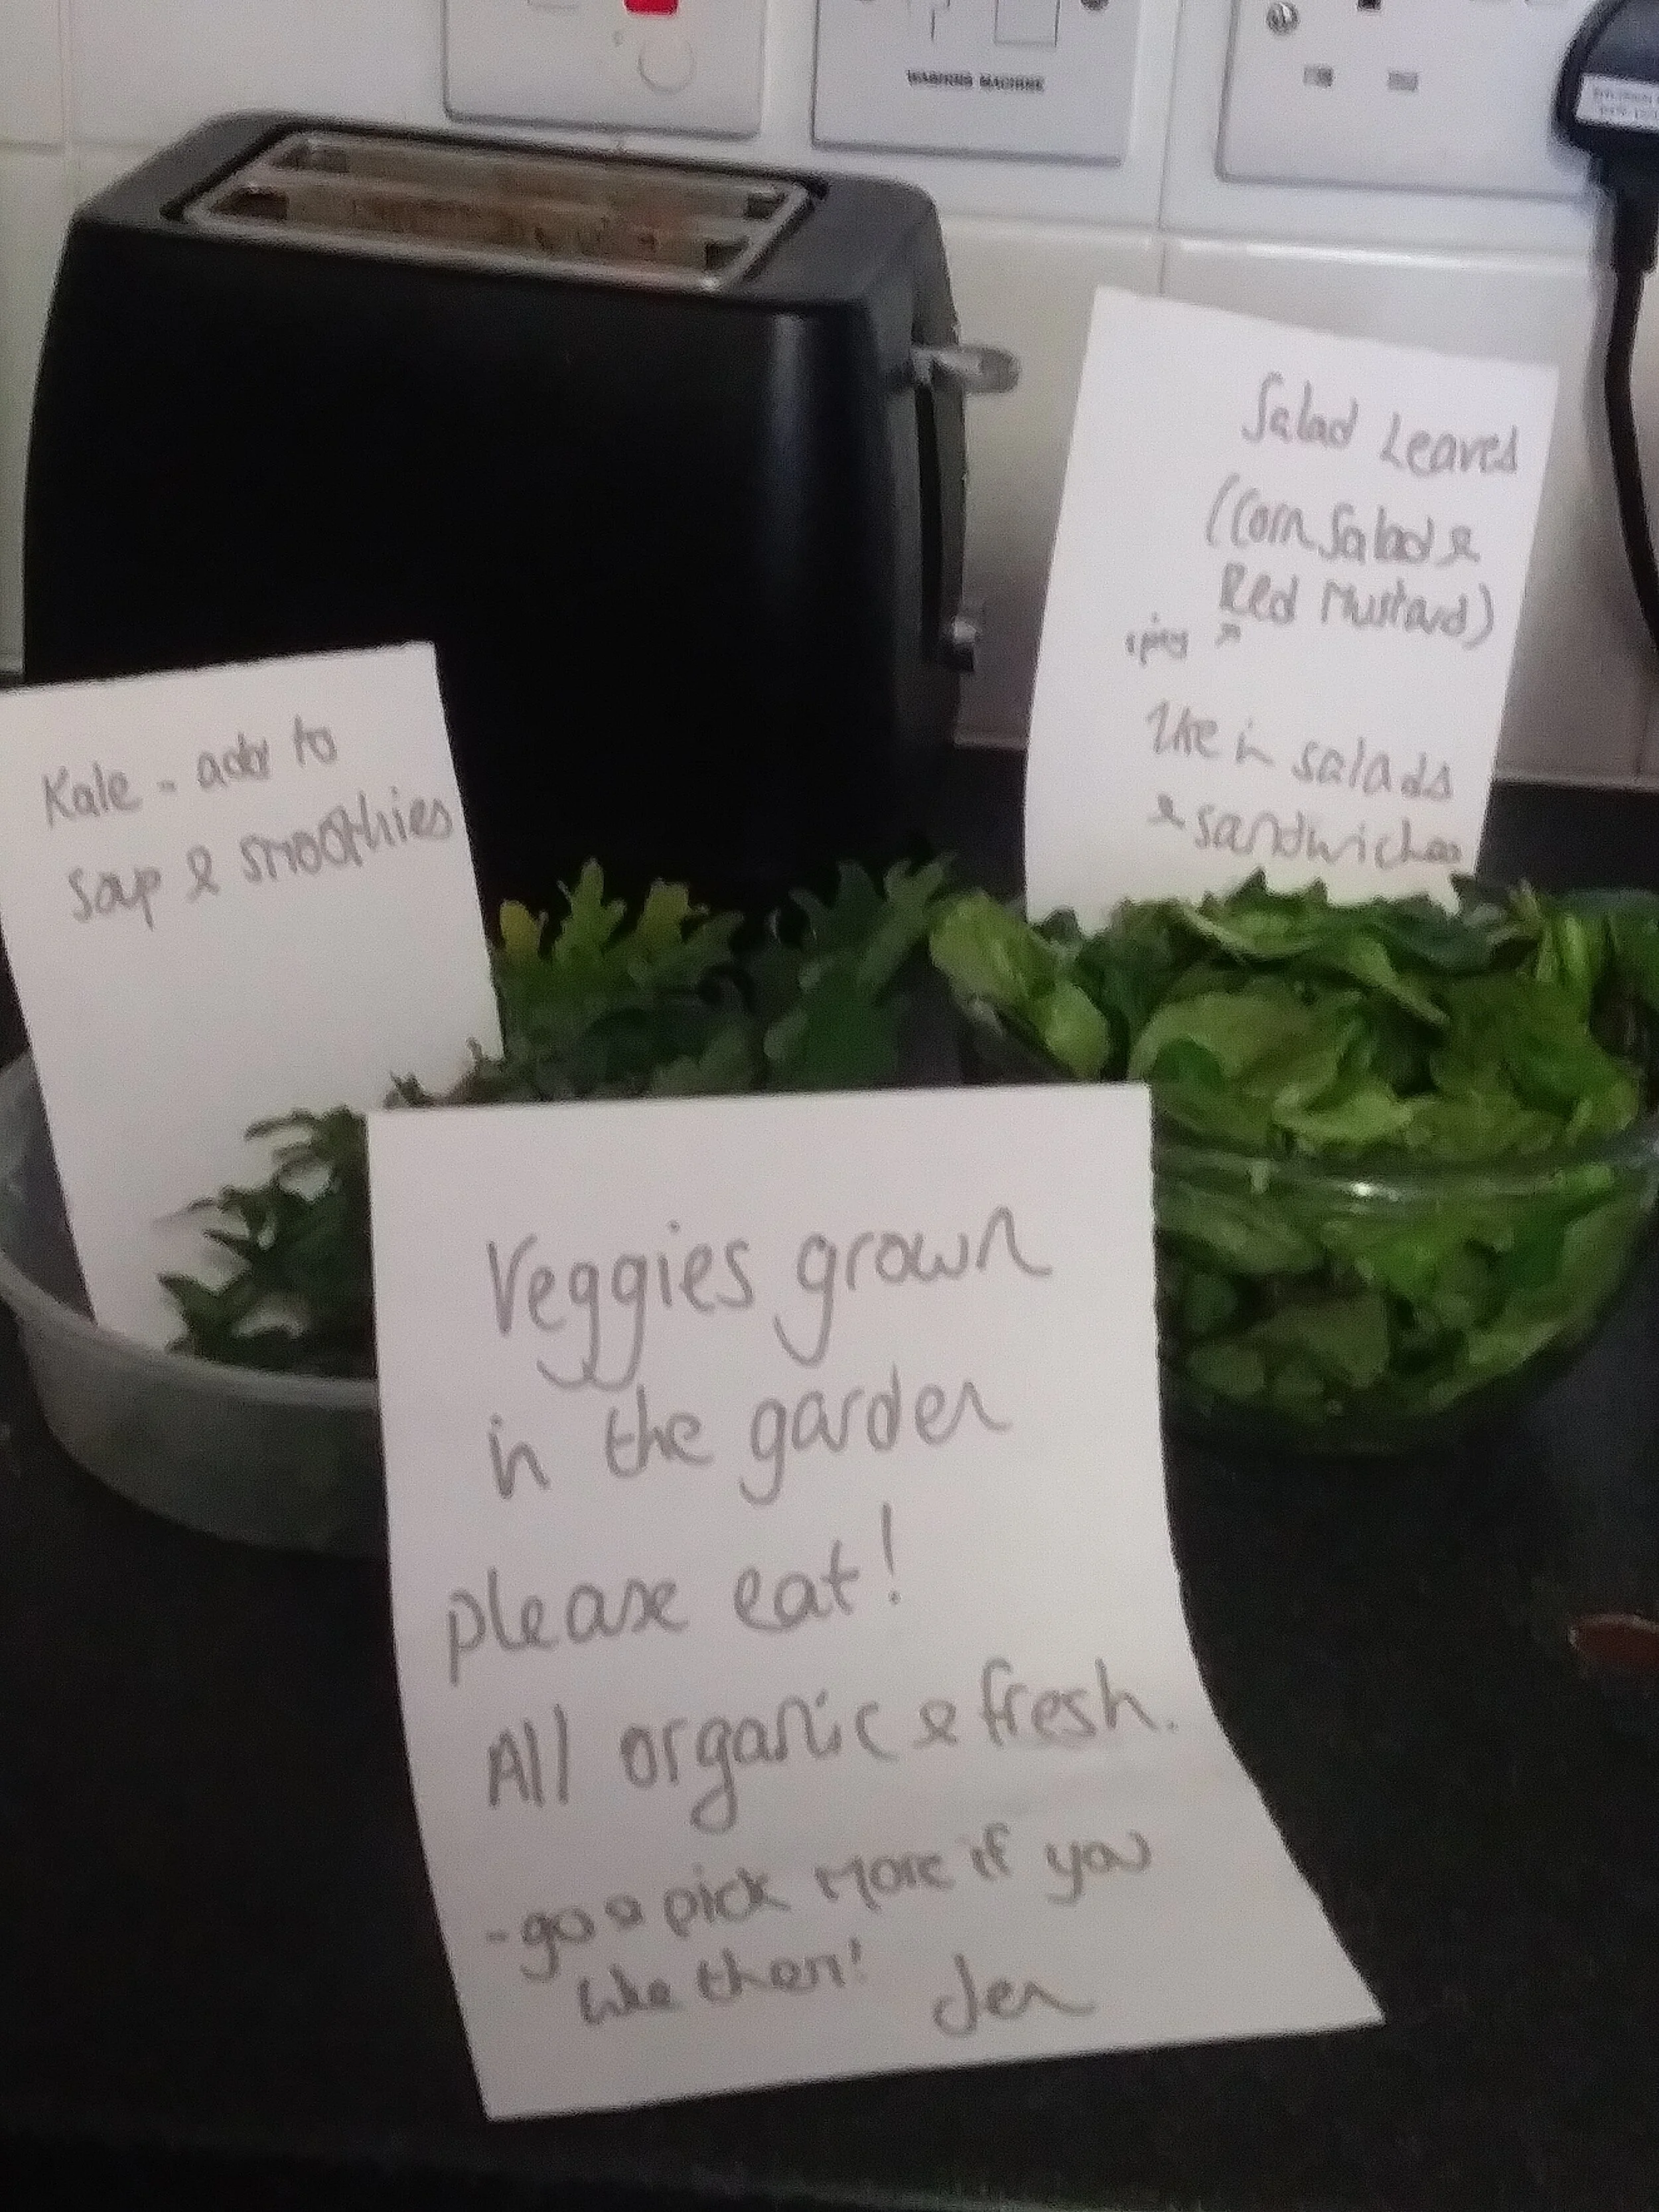 WASHING MACHINE
Salad Leaves
(Corn Salad &
Red Mustard)
spicy ↗
Use in salads
& sandwiches
Kale - add to
Soup & smoothies
Veggies grown
in the garden
please eat!
All organic & fresh.
- go & pick more if you
like them! Jen